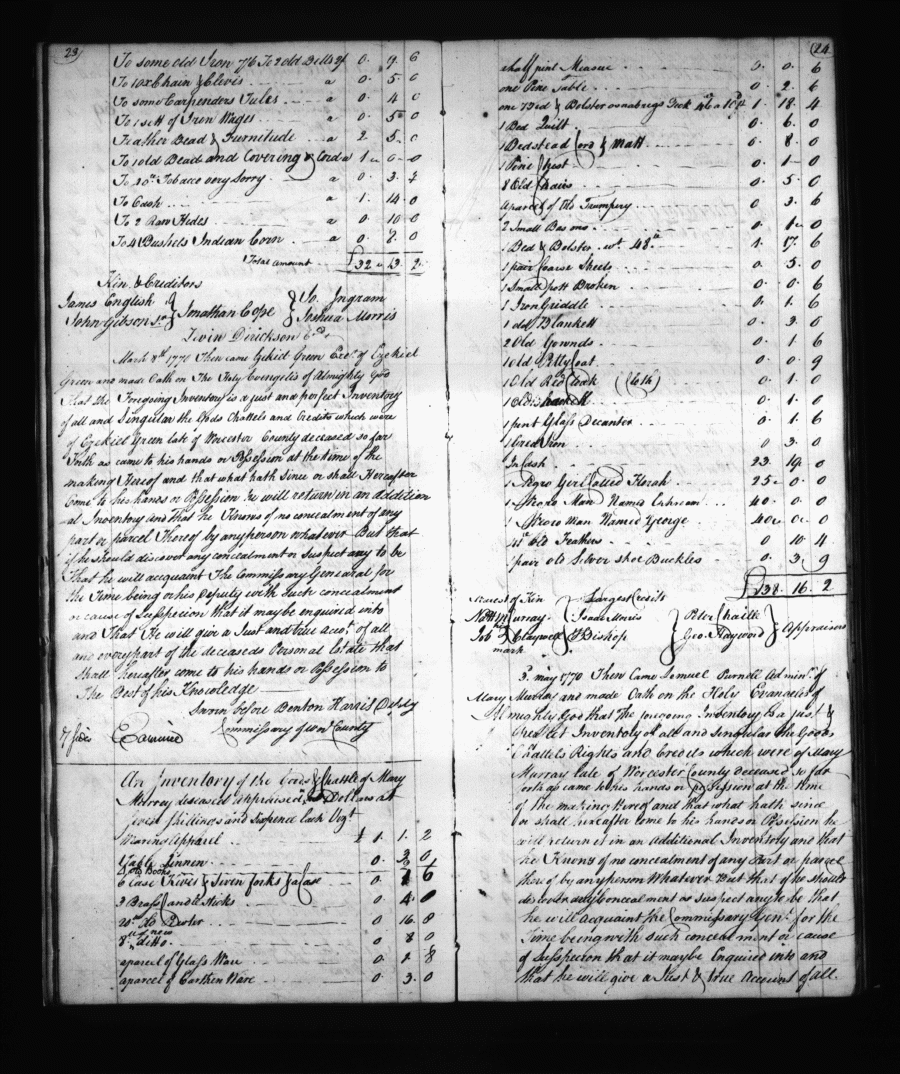 23
To some old Iron 7/6 To 2 old Bells 2/ 0. 9. 6
To 10 x Chain & Clevis a 0. 5. 0
To some Carpenders Tules a 0. 4. 0
To 1 sett of Iron Wages a 0. 5. 0
Feather Bead & Furnitude a 2. 5. 0
To 1 old Bead and Covering & Cord a 1. 0. 0
To Tobacco very Sorry a 0. 3.
To Cash a 1. 14. 0
To 2 Raw Hides a 0. 10. 0
To 4 Bushels Indian Corn a 0. 8. 0
Total amount £32. 13. 2
Kin & Creditors
James English } Jonathan Cope } Jo. Ingram
John Gibson Sr } Joshua Morris
Levin Dirickson
March 8th 1770 Then came Ezekiel Green Exer. of Ezekiel
Green and made Oath on The Holy Evengelis of Almighty God
that the Foregoing Inventory is a just and perfect Inventory
of all and Singular the Gods Chattels and Credits which were
of Ezekiel Green late of Worcester County deceased so far
Forth as came to his hands or Possession at the time of the
making Hereof and that what hath since or shall Hereafter
Come to his hands or Possession he will return in an addition
al Inventory and that he Knows of no concealment of any
part or parcel Thereof by any person whatever But that
if he should discover any concealment or Suspect any to be
That he will acquaint The Commissary General for
the Time being or his Deputy with Such concealment
or cause of Susspecion that it may be enquired into
and That He will give a Just and true acct. of all
and every part of the deceaseds Personal Estate that
shall hereafter come to his hands or Possession to
The Best of his Knowledge
Sworn before Benton Harris Depty
7 sides Examined Commissary of Wor County
An Inventory of the Goods & Chattle of Mary
Murray deceased appraised in Dollars at
Seven Shillings and Sixpence Each Vizt
Waring Apparel £ 1. 1. 2
Table Linnen 0. 3 0
Old Books
6 Case Knives & Seven forks & a Case 0. 1 6
3 Brass Candle Sticks 0. 4. 0
Old Pewter 0. 16. 8
8 lb new ditto 0 8 0
a parcel of Glass Ware 0. 2. 8
a parcel of Earthen Ware 0. 3. 0
24
a half pint Measue 0. 0. 6
one Pine Table 0. 2. 6
one Bed & Bolster osnabregs Teck 46 a 10d 1. 18. 4
1 Bed Quilt 0. 6. 0
1 Bedstead Cord & Matt 0. 8. 0
1 Pine Chest 0. 1. 0
8 Old Chairs 0. 5. 0
a parcel of Old Trumpery 0. 3. 6
2 Small Basons 0. 1. 0
1 Bed & Bolster wt. 48 lb 1. 17. 6
1 pair Coarse Sheets 0. 5. 0
1 Small pott Broken 0. 0. 6
1 Iron Griddle 0. 1. 6
1 old Blankett 0. 3. 0
2 Old Gownds 0. 1 6
1 Old Pettycoat 0. 0 9
1 Old Red Cloak (Cloth) 0. 1. 0
1 Old 0. 1. 0
1 pint Glass Decanter 0. 1. 6
0. 3. 0
In Cash 23. 19. 0
1 Negro Girl Called Florah 25. 0. 0
1 Negro Man Named 40. 0. 0
1 Negro Man Named George 40. 0. 0
Old Feathers 0 10. 4
1 pair old Silver Shoe Buckles 0. 3. 9
£138. 16. 2
Nearest of Kin Largest Credits
Murray } Isaac Morris } Peter Chaille } Appraisors
Claywell } Bishop } Geo. Hayword }
mark
3. may 1770 Then Came Semuel Purnell Admin. of
Mary Murray and made Oath on the Holy Evangeles of
Almighty God that The foregoing inventory is a just &
Perfect Inventoly of all and Singular the Goods
Chattels Rights and Credits which were of Mary
Murray late of Worcester County deceased so far
forth as came to his hands or possession at the time
of the making Hereof and that what hath since
or shall hereafter come to his hands or Possession he
will return it in an Additional Inventory and that
he Knows of no concealment of any Part or parcel
thereof by any person Whatever But that if he should
discover any Concealment or Suspect any to be that
he will acquaint the Commissary Genl. for the
Time being with such concealment or cause
of Susspecion that it may be Enquired into and
that he will give a Just & true Account of all